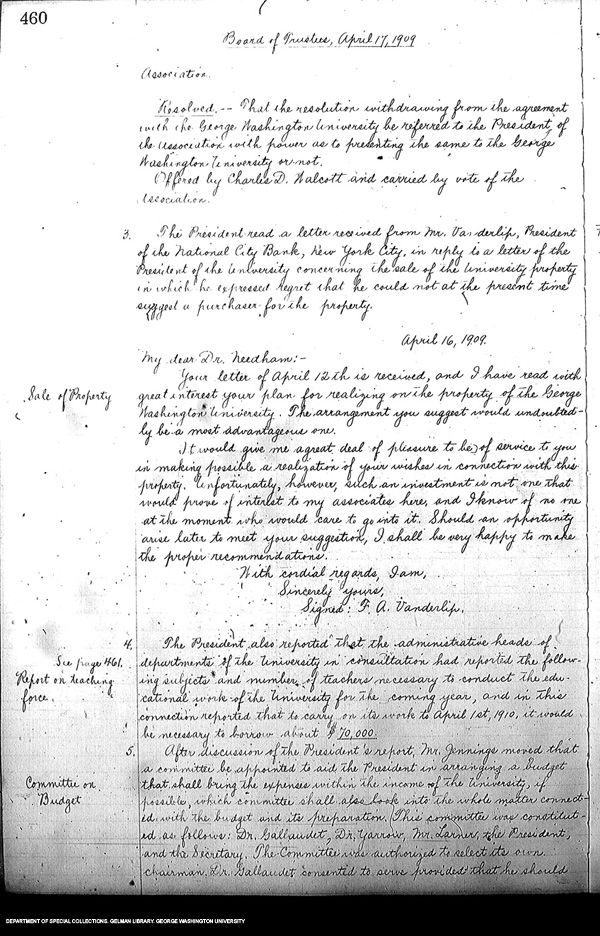 460
Board of Trustees, April 17, 1909
Association.
Resolved, -- That the resolution withdrawing from the agreement
with the George Washington University be referred to the President of
the Association with power as to presenting the same to the George
Washington University or not.
Offered by Charles D. Walcott and carried by vote of the
Association.
3. The President read a letter received from Mr. Vanderlip, President
of the National City Bank, New York City, in reply to a letter of the
President of the University concerning the sale of the University property
in which he expressed regret that he could not at the present time
suggest a purchaser for the property.
April 16, 1909.
My dear Dr. Needham:-
Your letter of April 12th is received, and I have read with
Sale of Property
great interest your plan for realizing on the property of the George
Washington University. The arrangement you suggest would undoubted-
ly be a most advantageous one.
It would give me a great deal of pleasure to be of service to you
in making possible a realization of your wishes in connection with this
property. Unfortunately, however, such an investment is not one that
would prove of interest to my associates here, and I know of no one
at the moment who would care to go into it. Should an opportunity
arise later to meet your suggestion, I shall be very happy to make
the proper recommendations.
With cordial regards, I am,
Sincerely yours,
Signed: F. A. Vanderlip.
4. The President also reported that the administrative heads of
See page 461.
departments of the University in consultation had reported the follow-
Report on teaching
ing subjects and number of teachers necessary to conduct the edu-
force.
cational work of the University for the coming year, and in this
connection reported that to carry on its work to April 1st, 1910, it would
be necessary to borrow about $70,000.
5. After discussion of the President's report, Mr. Jennings moved that
a committee be appointed to aid the President in arranging a budget
Committee on
that shall bring the expenses within the income of the University, if
Budget
possible, which committee shall also look into the whole matter connect-
ed with the budget and its preparation. This committee was constitut-
ed as follows: Dr. Gallaudet, Dr. Yarrow, Mr. Larner, the President,
and the Secretary. The Committee was authorized to select its own
chairman. Dr. Gallaudet consented to serve provided that he should
DEPARTMENT OF SPECIAL COLLECTIONS. GELMAN LIBRARY. GEORGE WASHINGTON UNIVERSITY